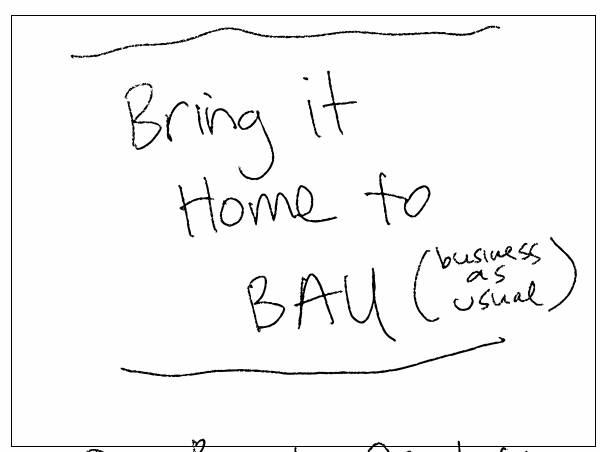 Bring it
Home to
BAU (business
as
usual)